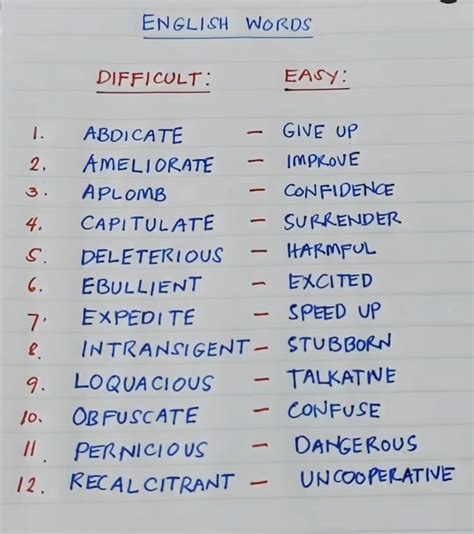 ENGLISH WORDS
DIFFICULT: EASY:
1. ABDICATE – GIVE UP
2. AMELIORATE – IMPROVE
3. APLOMB – CONFIDENCE
4. CAPITULATE – SURRENDER
5. DELETERIOUS – HARMFUL
6. EBULLIENT – EXCITED
7. EXPEDITE – SPEED UP
8. INTRANSIGENT – STUBBORN
9. LOQUACIOUS – TALKATIVE
10. OBFUSCATE – CONFUSE
11. PERNICIOUS – DANGEROUS
12. RECALCITRANT – UNCOOPERATIVE